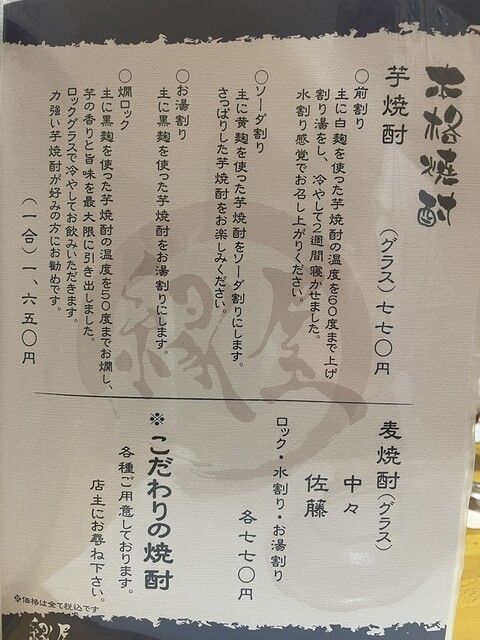 本格焼酎
芋焼酎
(グラス)七七〇円
〇前割り
主に白麹を使った芋焼酎の温度を60度まで上げ
割り湯をし、冷やして2週間寝かせました。
水割り感覚でお召し上がりください。
〇ソーダ割り
主に黄麹を使った芋焼酎をソーダ割りにします。
さっぱりした芋焼酎をお楽しみください。
〇お湯割り
主に黒麹を使った芋焼酎をお湯割りにします。
〇燗ロック
主に黒麹を使った芋焼酎の温度を50度までお燗し、
芋の香りと旨味を最大限に引き出しました。
ロックグラスで冷やしてお飲みいただきます。
力強い芋焼酎が好みの方にお勧めです。
(一合)一、六五〇円
麦焼酎(グラス)
中々
佐藤
ロック・水割り・お湯割り
各七七〇円
※こだわりの焼酎
各種ご用意しております。
店主にお尋ね下さい。
※価格は全て税込みです
縁屋
縁屋